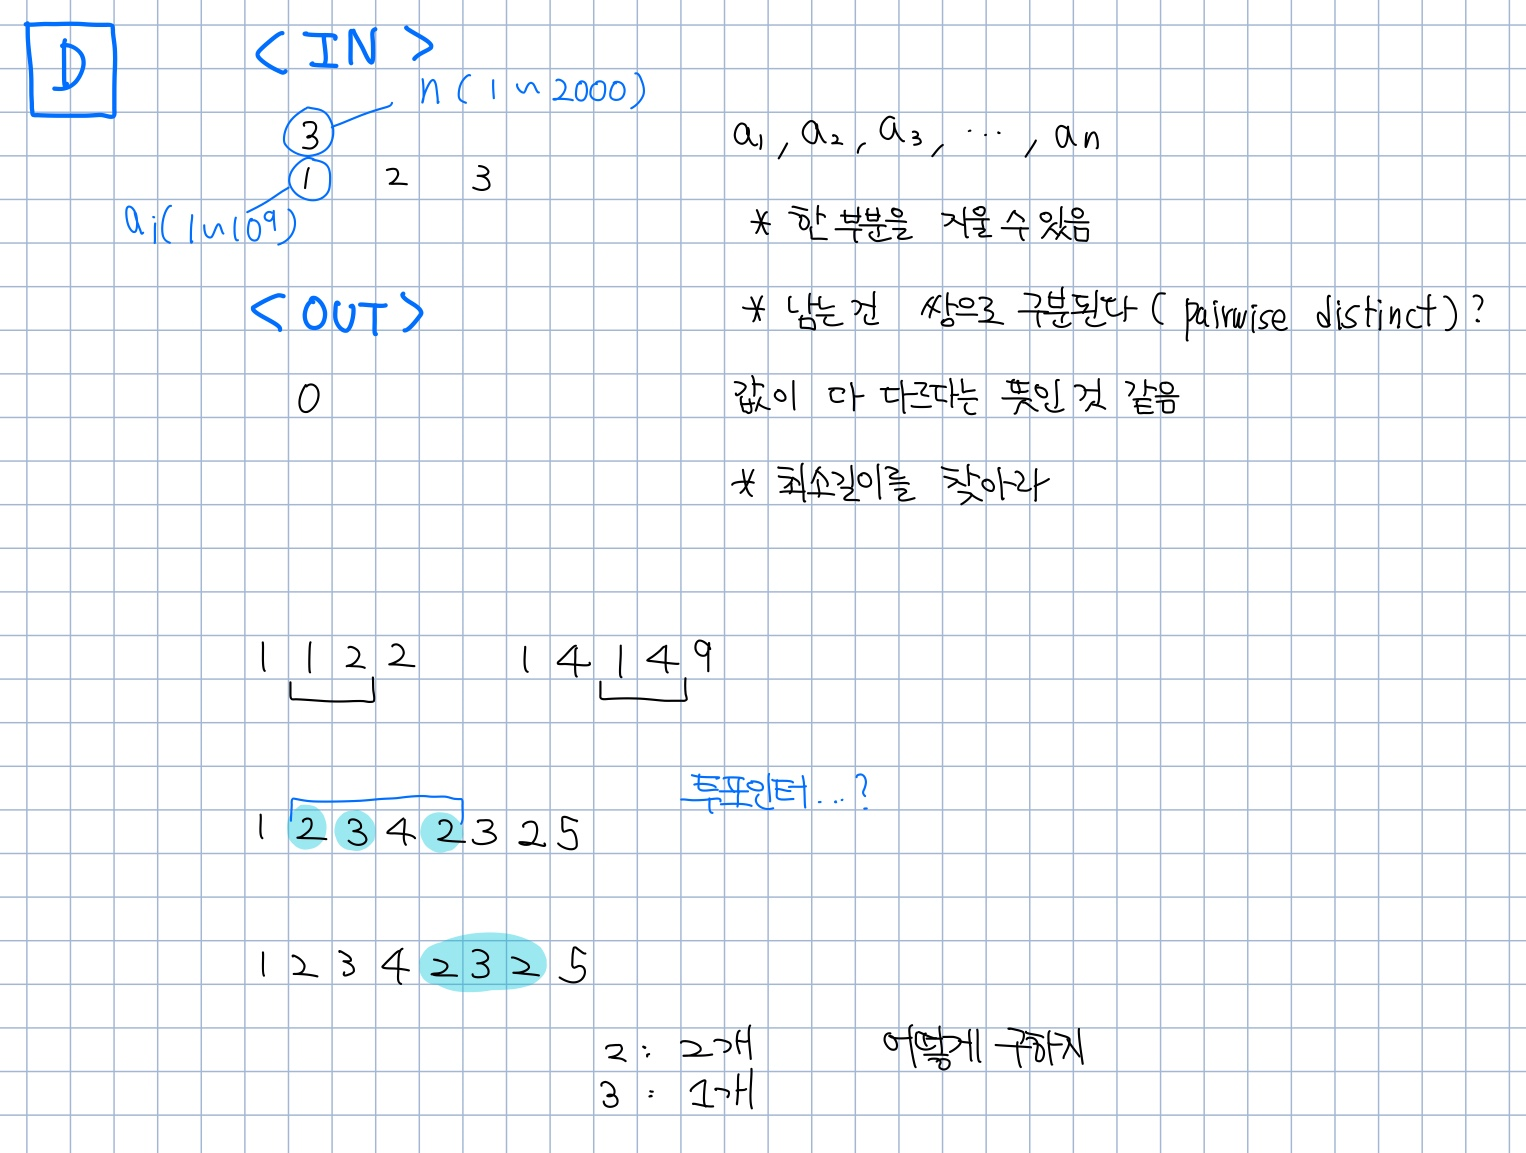 D
< IN >
n ( 1 ~ 2000 )
3
1 2 3
ai ( 1 ~ 10⁹ )
< OUT >
0
a₁ , a₂ , a₃ , ⋯ , an
* 한 부분을 지울 수 있음
* 남는 건 쌍으로 구분된다 ( pairwise distinct ) ?
값이 다 다르다는 뜻인 것 같음
* 최소길이를 찾아라
1 1 2 2
1 4 1 4 9
투포인터...?
1 2 3 4 2 3 2 5
1 2 3 4 2 3 2 5
2 : 2개
3 : 1개
어떻게 구하지